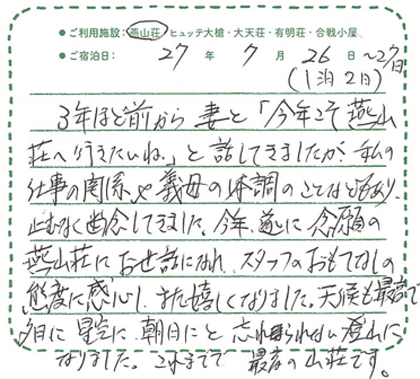 ●ご利用施設：燕山荘・ヒュッテ大槍・大天荘・有明荘・合戦小屋
●ご宿泊日： 27年 7月 26日～27日
(1泊2日)
3年ほど前から妻と「今年こそ燕山
荘へ行きたいね。」と話してきましたが、私の
仕事の関係や義母の体調のことなどもあり、
止むなく断念してきました。今年、遂に念願の
燕山荘にお世話になれ、スタッフのおもてなしの
態度に感心し、また嬉しくなりました。天候も最高で
夕日に星空に朝日にと忘れられない登山に
なりました。これまでで最高の山荘です。